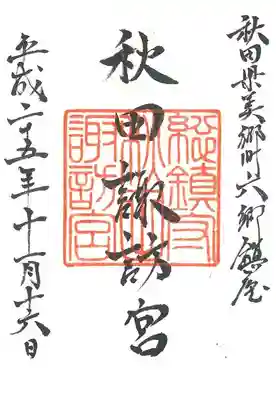 秋田県美郷町六郷鎮座
秋田諏訪宮
總鎮守
諏訪宮
平成二五年十一月十六日